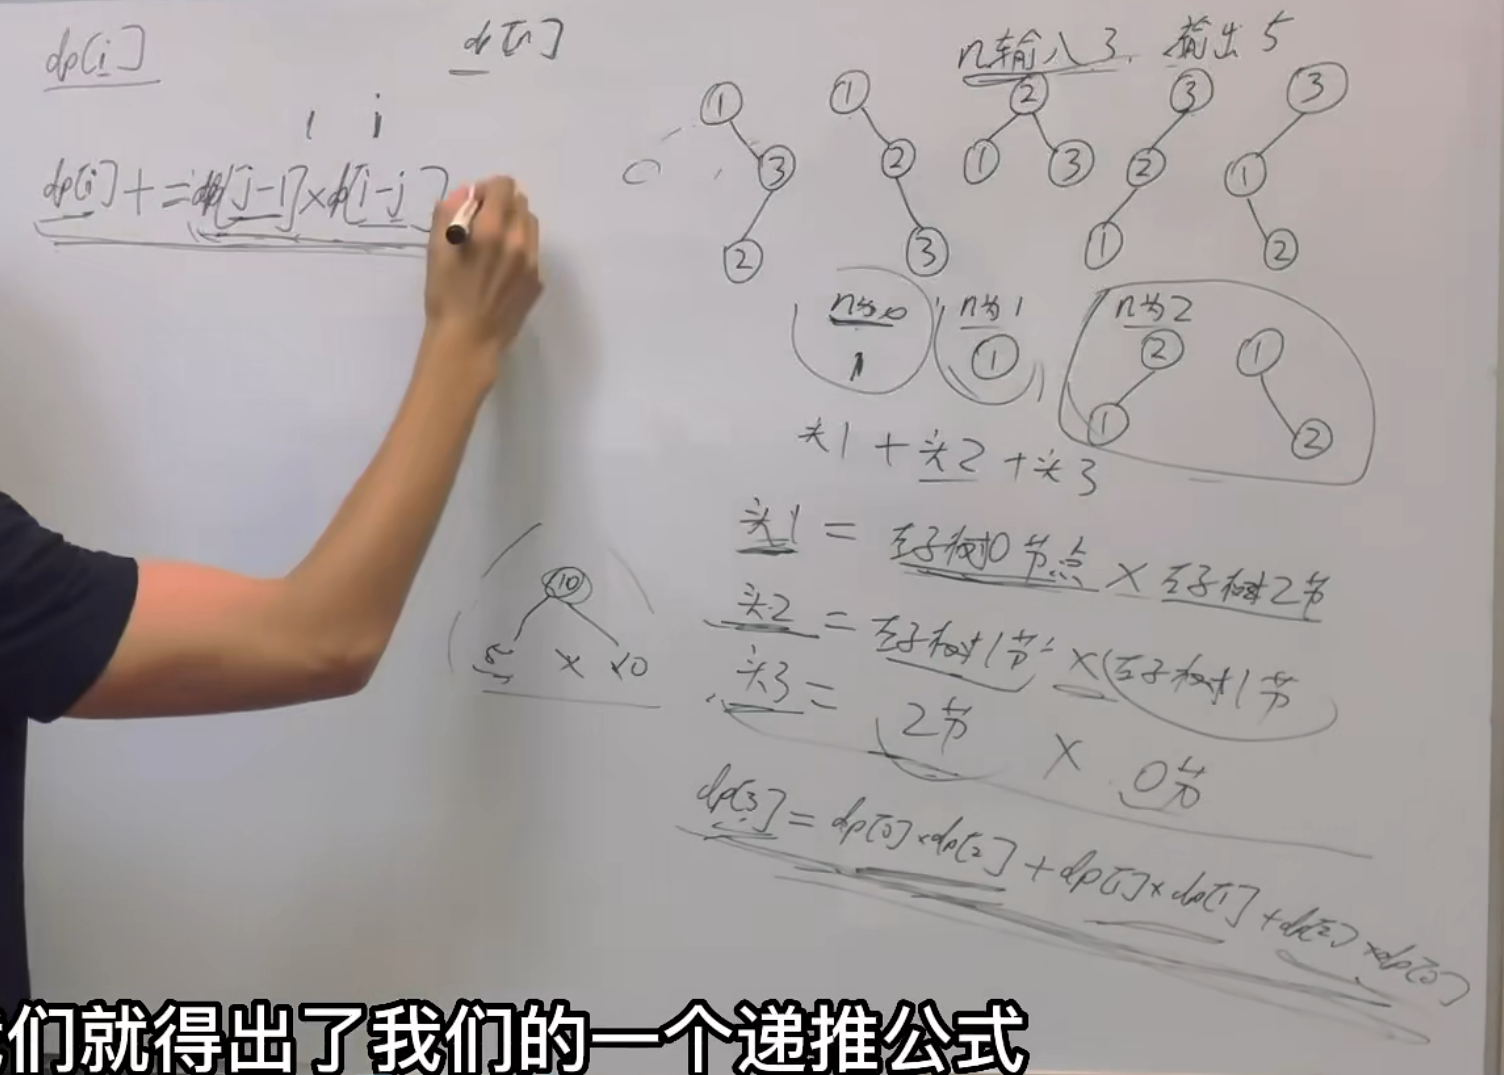 dp[i]
dp[n]
1 i
dp[i] += dp[j-1] × dp[i-j]
n输入3. 输出5
① ① ② ③ ③
③ ② ① ③ ② ①
② ③ ① ②
n为0 n为1 n为2
1 ① ② ①
① ②
头1 + 头2 + 头3
头1 = 左子树0节点 × 右子树2节
头2 = 左子树1节 × (右子树1节
头3 = 2节 × 0节
10
5 × 10
dp[3] = dp[0]×dp[2] + dp[1]×dp[1] + dp[2]×dp[0]
们就得出了我们的一个递推公式